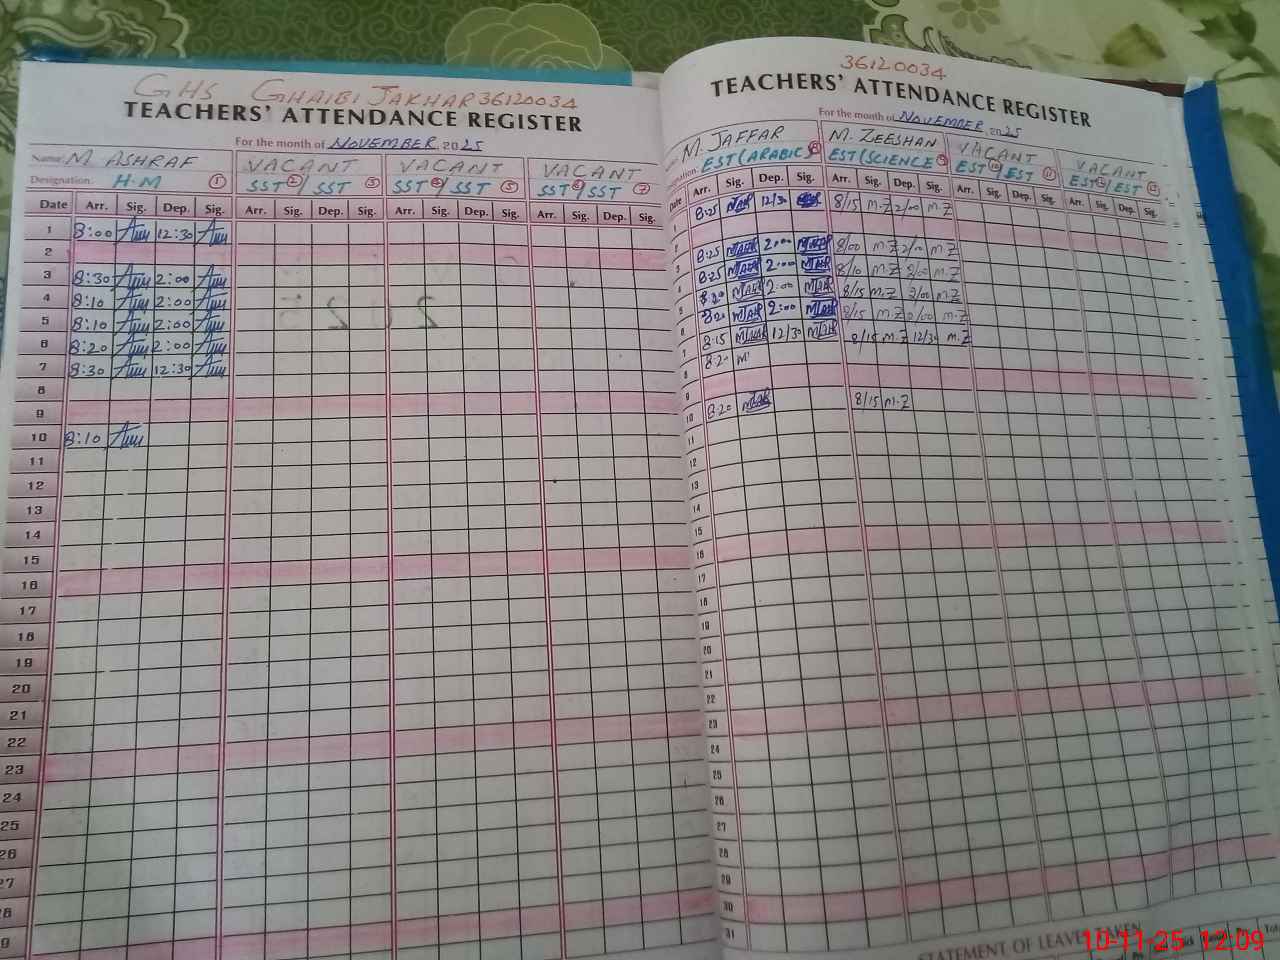 GHS GHAIBI JAKHAR 36120034
TEACHERS' ATTENDANCE REGISTER
For the month of NOVEMBER 2025
Name: M. ASHRAF VACANT VACANT VACANT
Designation. H.M 1 SST 2 / SST 3 SST / SST 5 SST / SST 7
Date Arr. Sig. Dep. Sig. Arr. Sig. Dep. Sig. Arr. Sig. Dep. Sig. Arr. Sig. Dep. Sig.
1 8:00 12:30
2
3 8:30 2:00
4 8:10 2:00
5 8:10 2:00
6 8:20 2:00
7 8:30 12:30
8
9
10 8:10
11
12
13
14
15
16
17
18
19
20
21
22
23
24
25
26
27
28
29
36120034
TEACHERS' ATTENDANCE REGISTER
For the month of NOVEMBER 2025
M. JAFFAR M. ZEESHAN VACANT VACANT
EST (ARABIC) EST (SCIENCE) EST / EST 11 EST / EST
Date Arr. Sig. Dep. Sig. Arr. Sig. Dep. Sig. Arr. Sig. Dep. Sig. Arr. Sig. Dep. Sig.
8:25 12/30 8/15 M.Z 2/00 M.Z
2 8:25 2:00 8/00 M.Z 2/00 M.Z
3 8:25 2:00 8/10 M.Z 2/00 M.Z
4 8:20 2:00 8/15 M.Z 2/00 M.Z
5 8:20 2:00 8/15 M.Z 2/00 M.Z
6 8:15 12/30 8/15 M.Z 12/30 M.Z
7 8:20 M
8
9
10 8:20 8/15 M.Z
11
12
13
14
15
16
17
18
19
20
21
22
23
24
25
26
27
28
29
30
31
STATEMENT OF LEAVE TAKEN
10-11-25 12:09